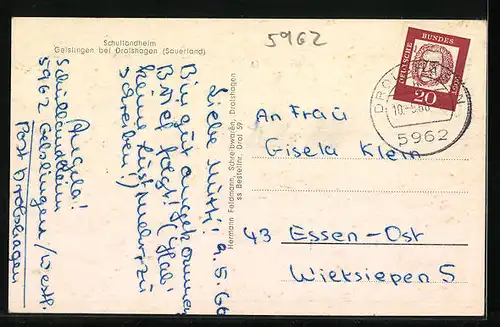 Schullandheim
Geislingen bei Drolshagen (Sauerland)
5962
9.5.66
Liebe Mutti!
Bin gut angekommen
Brief folgt! (Hab'
keine Lust mehr zu
schreiben!)
Angela!
Schullandheim
5962 Geislingen/Westf.
Post Drolshagen
Hermann Feldmann, Schreibwaren, Drolshagen
ss Bestellnr. Drol 59
DEUTSCHE BUNDESPOST
20
10.-5.66
5962
An Frau
Gisela Klein
43 Essen-Ost
Wieksiepen 5